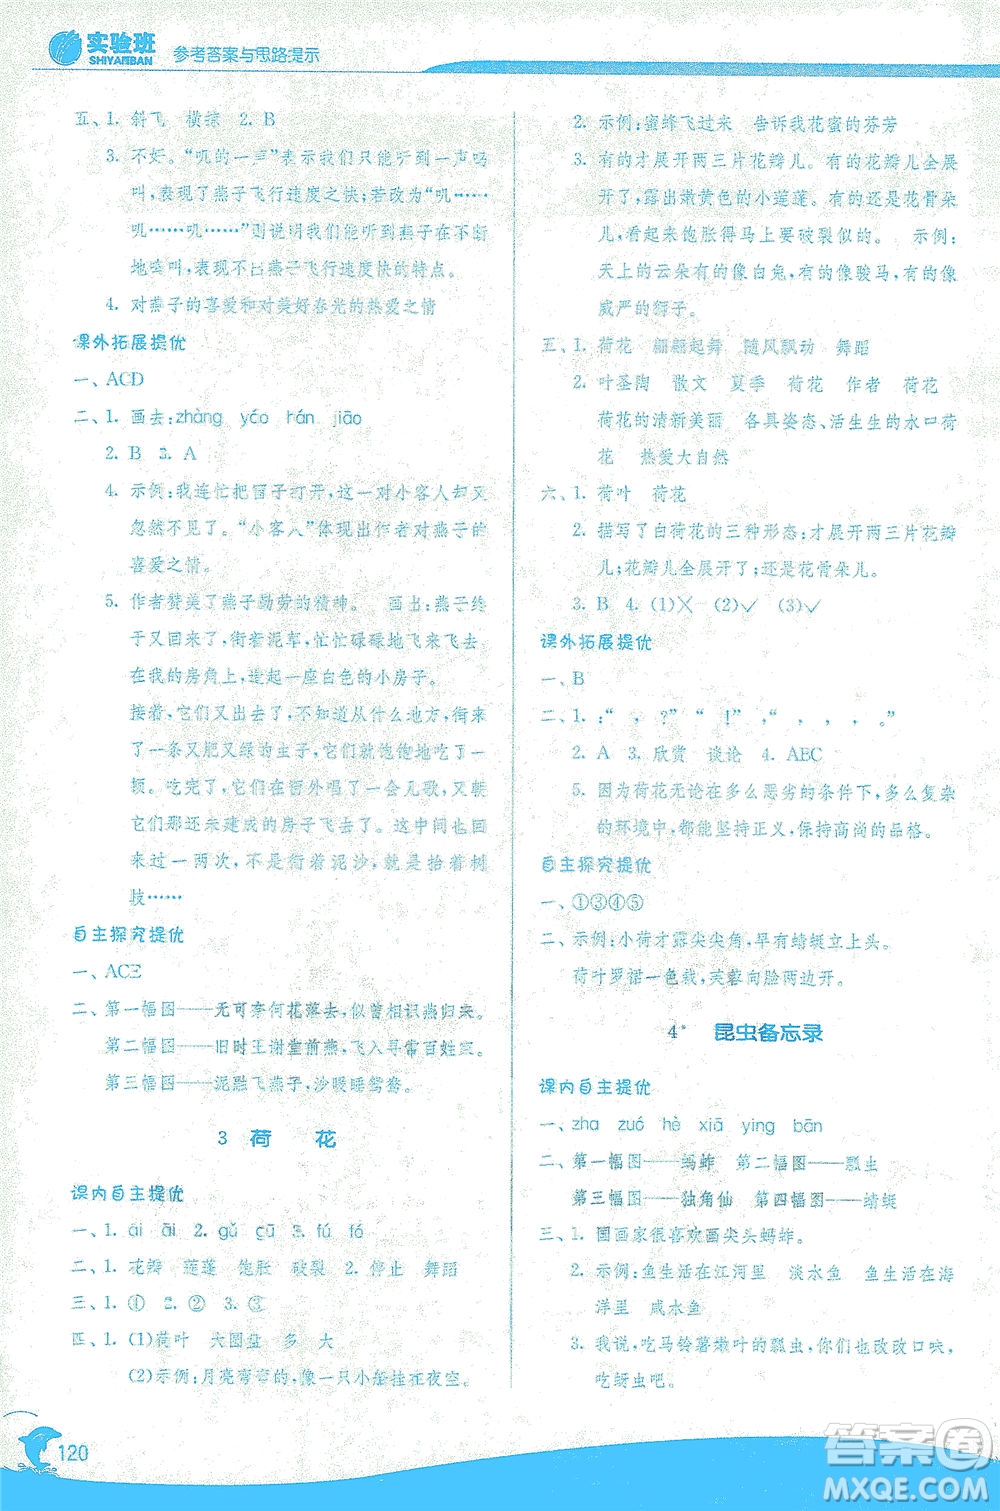 实验班
SHIYANBAN
参考答案与思路提示
五、1. 斜飞 横掠 2. B
3. 不好。“叽的一声”表示我们只能听到一声鸣
叫,表现了燕子飞行速度之快;若改为“叽……
叽……叽……”则说明我们可以听到燕子在不断
地鸣叫,表现不出燕子飞行速度快的特点。
4. 对燕子的喜爱和对美好春光的热爱之情
课外拓展提优
一、ACD
二、1. 画去:zhàng yáo hán jiāo
2. B 3. A
4. 示例:我连忙把窗子打开,这一对小客人却又
忽然不见了。“小客人”体现出作者对燕子的
喜爱之情。
5. 作者赞美了燕子勤劳的精神。 画出:燕子终
于又回来了,衔着泥草,忙忙碌碌地飞来飞去,
在我的房角上,垒起一座白色的小房子。
接着,它们又出去了,不知道从什么地方,衔来
了一条又肥又绿的虫子,它们就饱饱地吃了一
顿。吃完了,它们在窗外唱了一会儿歌,又朝
它们那还未建成的房子飞去了。这样来来往往
一两次,不是衔着泥沙,就是拾着树
枝……
自主探究提优
一、ACE
二、第一幅图——无可奈何花落去,似曾相识燕归来。
第二幅图——旧时王谢堂前燕,飞入寻常百姓家。
第三幅图——泥融飞燕子,沙暖睡鸳鸯。
3 荷 花
课内自主提优
一、1. ái āi 2. gǔ gū 3. fú fó
二、1. 花瓣 莲蓬 饱胀 破裂 2. 停止 舞蹈
三、1. ① 2. ② 3. ③
四、1. (1)荷叶 大圆盘 多 大
(2)示例:月亮弯弯的,像一只小船挂在夜空。
2. 示例:蜜蜂飞过来 告诉我花蜜的芬芳
3. 有的才展开两三片花瓣儿。有的花瓣儿全展
开了,露出嫩黄色的小莲蓬。有的还是花骨朵
儿,看起来饱胀得马上要破裂似的。 示例:
天上的云朵有的像白兔,有的像骏马,有的像
威严的狮子。
五、1. 荷花 翩翩起舞 随风飘动 舞蹈
2. 叶圣陶 散文 夏季 荷花 作者 荷花
荷花的清新美丽 各具姿态、活生生的水中荷
花 热爱大自然
六、1. 荷叶 荷花
2. 描写了白荷花的三种形态:才展开两三片花瓣
儿;花瓣儿全展开了;还是花骨朵儿。
3. B 4. (1)✕ (2)✓ (3)✓
课外拓展提优
一、B
二、1. :“ , ?”“ !”,“ , , 。”
2. A 3. 欣赏 谈论 4. ABC
5. 因为荷花无论在多么恶劣的条件下,多么复杂
的环境中,都能坚持正义,保持高尚的品格。
自主探究提优
一、①③④⑤
二、示例:小荷才露尖尖角,早有蜻蜓立上头。
荷叶罗裙一色裁,芙蓉向脸两边开。
4* 昆虫备忘录
课内自主提优
一、zha zuó hè xiā ying bān
二、第一幅图——蚂蚱 第二幅图——瓢虫
第三幅图——独角仙 第四幅图——蜻蜓
三、1. 国画家很喜欢画尖头蚂蚱。
2. 示例:鱼生活在江河里 淡水鱼 鱼生活在海
洋里 咸水鱼
3. 我说,吃马铃薯嫩叶的瓢虫,你也改改口味,
吃蚜虫吧。
120
答案圈
MXQE.COM